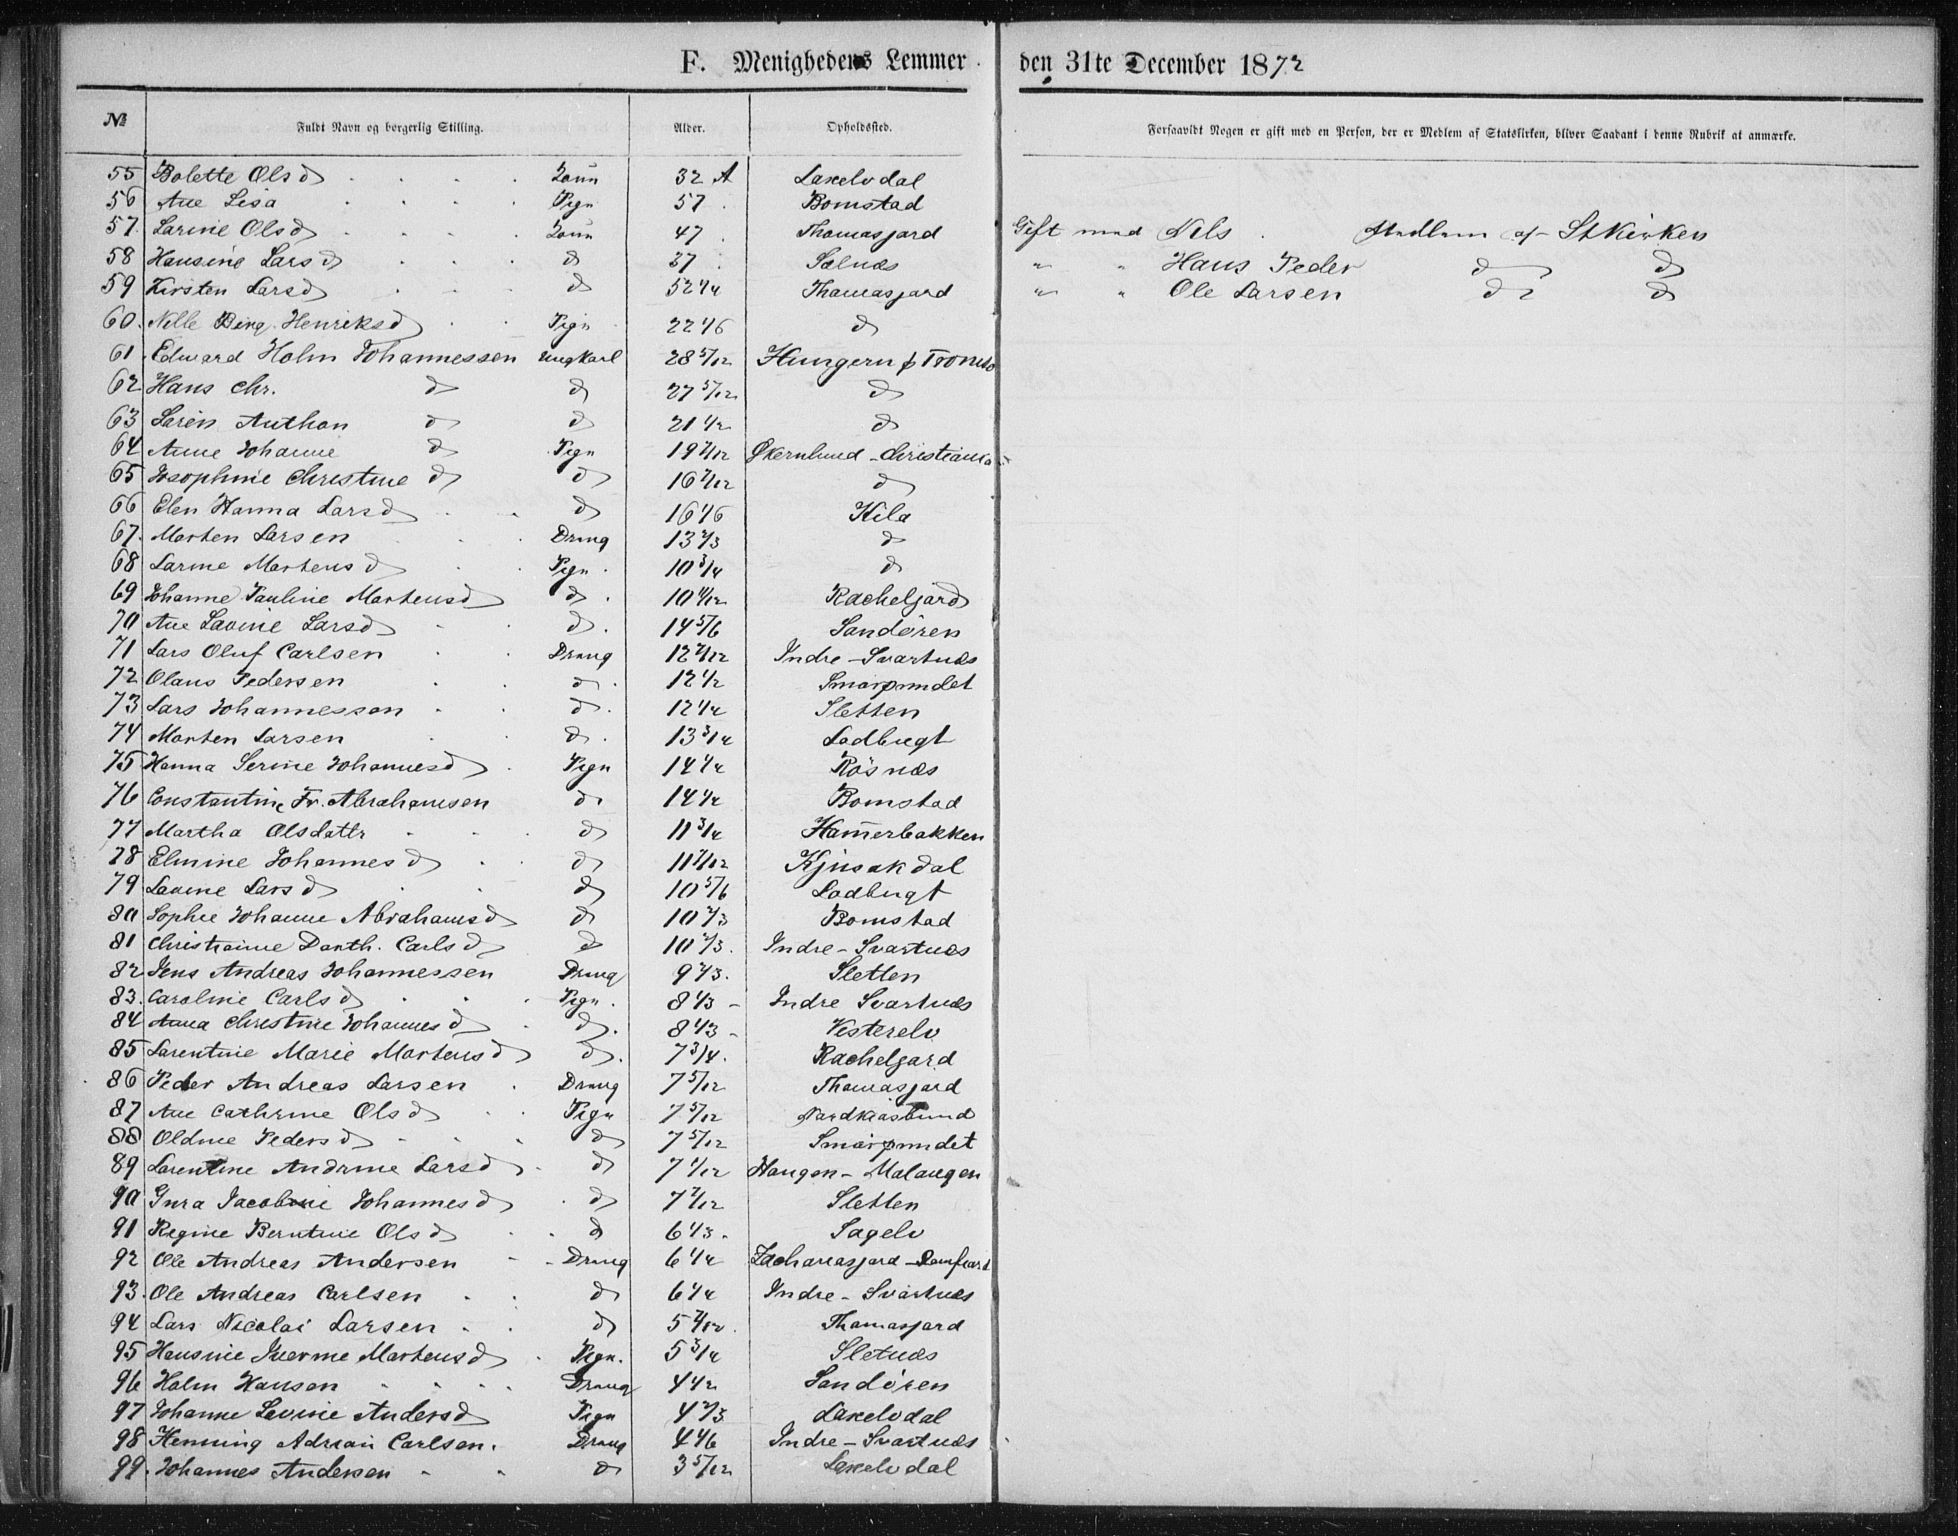 F. Menighedens Lemmer den 31te December 1872
№ Fuldt Navn og borgerlig Stilling. Alder. Opholdssted. Forsaavidt Nogen er gift med en Person, der er Medlem af Statskirken, bliver Saadant i denne Rubrik at anmærke.
55 Bolette Olsd 32 Lakelvdal
56 Ane Lisa Pign 57 Bomstad
57. Larine Olsd 47 Thomasjord Gift med Nels Medlem af StKirken
58 Hansine Larsd d 37 Solnæs " " Hans Peder d d
59 Kirsten Larsd d 52 Thomasjord " " Ole Larsen d d
60. Henriksd Pign 22 d
61. Edvard Holm Johannessen ungkarl 28 5/12 Hungern p Tromsö
62 Hans Chr. d d 27 5/12 d
63 Sören Anthon d d 21 1/2 d
64 Anne Johanne d Pign 19 Christiania
65 Josephine Christine d d 16 d
66 Elen Hanna Larsd d 16 1/6 Kila
67. Morten Larsen Dreng 13 2/3 d
68 Larine Martensd Pign 10 3/4 d
69 Johanne Pauline Martensd d 10 Racheljord
70 Ane Lavine Larsd d 14 5/6 Sandören
71 Lars Oluf Carlsen Dreng 12 Indre-Svartnæs
72 Olaus Pedersen d 12 1/2 Smörpundet
73 Lars Johannessen d 12 1/4 Sletten
74 Morten Larsen d 13 3/4 Lodbugt
75 Hanna Serine Johannesd Pign 14 Rösnæs
76 Constantine Fr. Abrahamsen d 14 Bomstad
77 Martha Olsdatter d 11 3/4 Hamerbakken
78 Elmine Johannesd d 11 Kjusakdal
79 Lavine Larsd d 10 5/6 Lodbugt
80 Sophie Johanne Abrahamsd d 10 2/3 Bomstad
81 Christianne Dorth. Carlsd d 10 2/3. Indre-Svartnæs
82 Jens Andreas Johannessen Dreng 9 2/3. Sletten
83. Caroline Carlsd Pign. 8 1/3 Indre Svartnæs
84 Anna Christine Johannesd d. 8 1/3 Vesterelv
85 Larentine Marie Martensd d. 7 3/4. Racheljord
86 Peder Andreas Larsen Dreng 7 5/12 Thomasjord
87 Ane Cathrine Olsd Pign 7 5/12 Nordkjosbund
88 Oldine Pedersd d 7 5/12 Smörpundet
89 Larentine Andrine Larsd d 7 1/12 Haugen-Malangen
90 Gura Jacobine Johannesd d 7 Sletten
91 Regine Berntine Olsd d 6 1/3. Sagelv
92 Ole Andreas Andersen Dreng 6 1/4 Zachariasjord - Ramfjord
93. Ole Andreas Carlsen d 6 1/4 Indre-Svartnæs
94 Lars Nicolai Larsen d 5 Thomasjord
95 Hansine Iverine Martensd Pign. 5 3/4 Sletnæs
96 Holm Hansen Dreng 4 1/2 Sandören
97 Johanne Lovine Andersd Pign 4 2/3 Lakelvdal
98 Henning Adrian Carlsen. Dreng 4 1/6 Indre-Svartnæs
99. Johannes Andersen d 3 5/12 Lakelvdal